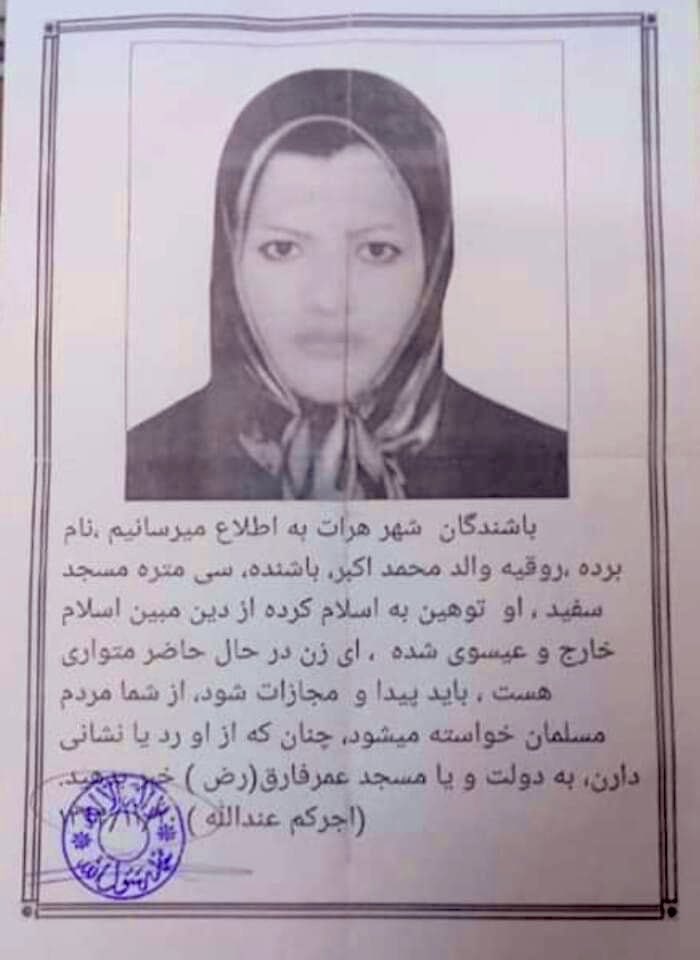 باشندگان شهر هرات به اطلاع میرسانیم ،نام
برده ،روقیه والد محمد اکبر، باشنده، سی متره مسجد
سفید ، او توهین به اسلام کرده از دین مبین اسلام
خارج و عیسوی شده ، ای زن در حال حاضر متواری
هست ، باید پیدا و مجازات شود، از شما مردم
مسلمان خواسته میشود، چنان که از او رد یا نشانی
دارن، به دولت و یا مسجد عمرفارق(رض ) خبر بدهید.
(اجرکم عندالله )